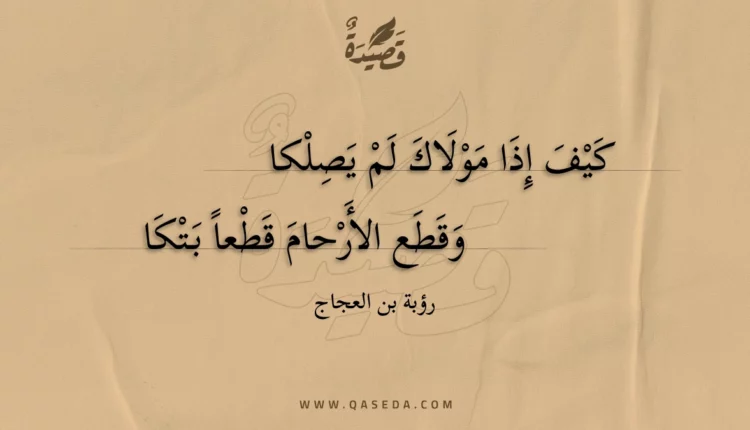 قَصِيدَةٌ
كَيْفَ إِذَا مَوْلَاكَ لَمْ يَصِلْكا
وَقَطَع الأَرْحامَ قَطْعاً بَتْكَا
رؤبة بن العجاج
WWW.QASEDA.COM